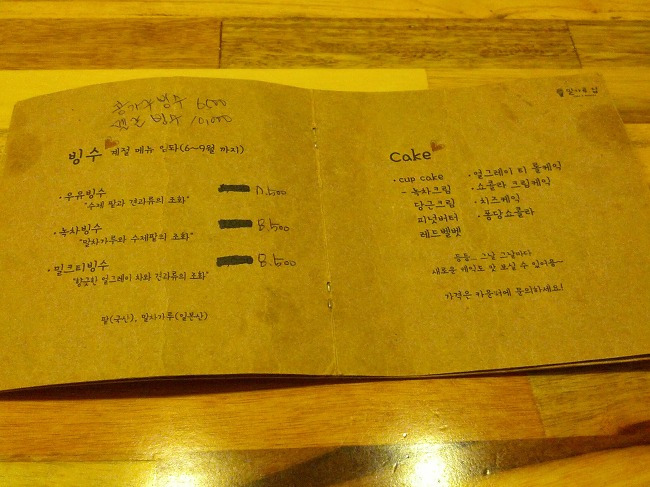 콩가루빙수 6500
빙수 10,000
빙수 계절 메뉴 입니다(6~9월 까지)
· 우유빙수 7,500
"수제 팥과 견과류의 조화"
· 녹차빙수 8,500
"말차가루와 수제팥의 조화"
· 밀크티빙수 8,500
"향긋한 얼그레이 차와 견과류의 조화"
팥(국산), 말차가루(일본산)
Cake
· cup cake
- 녹차크림
당근크림
피넛버터
레드벨벳
· 얼그레이 티 롤케익
· 쇼콜라 크림케익
· 치즈케익
· 퐁당쇼콜라
등등... 그날 그날마다
새로운 케익도 맛 보실 수 있어용~
가격은 카운터에 문의하세요!